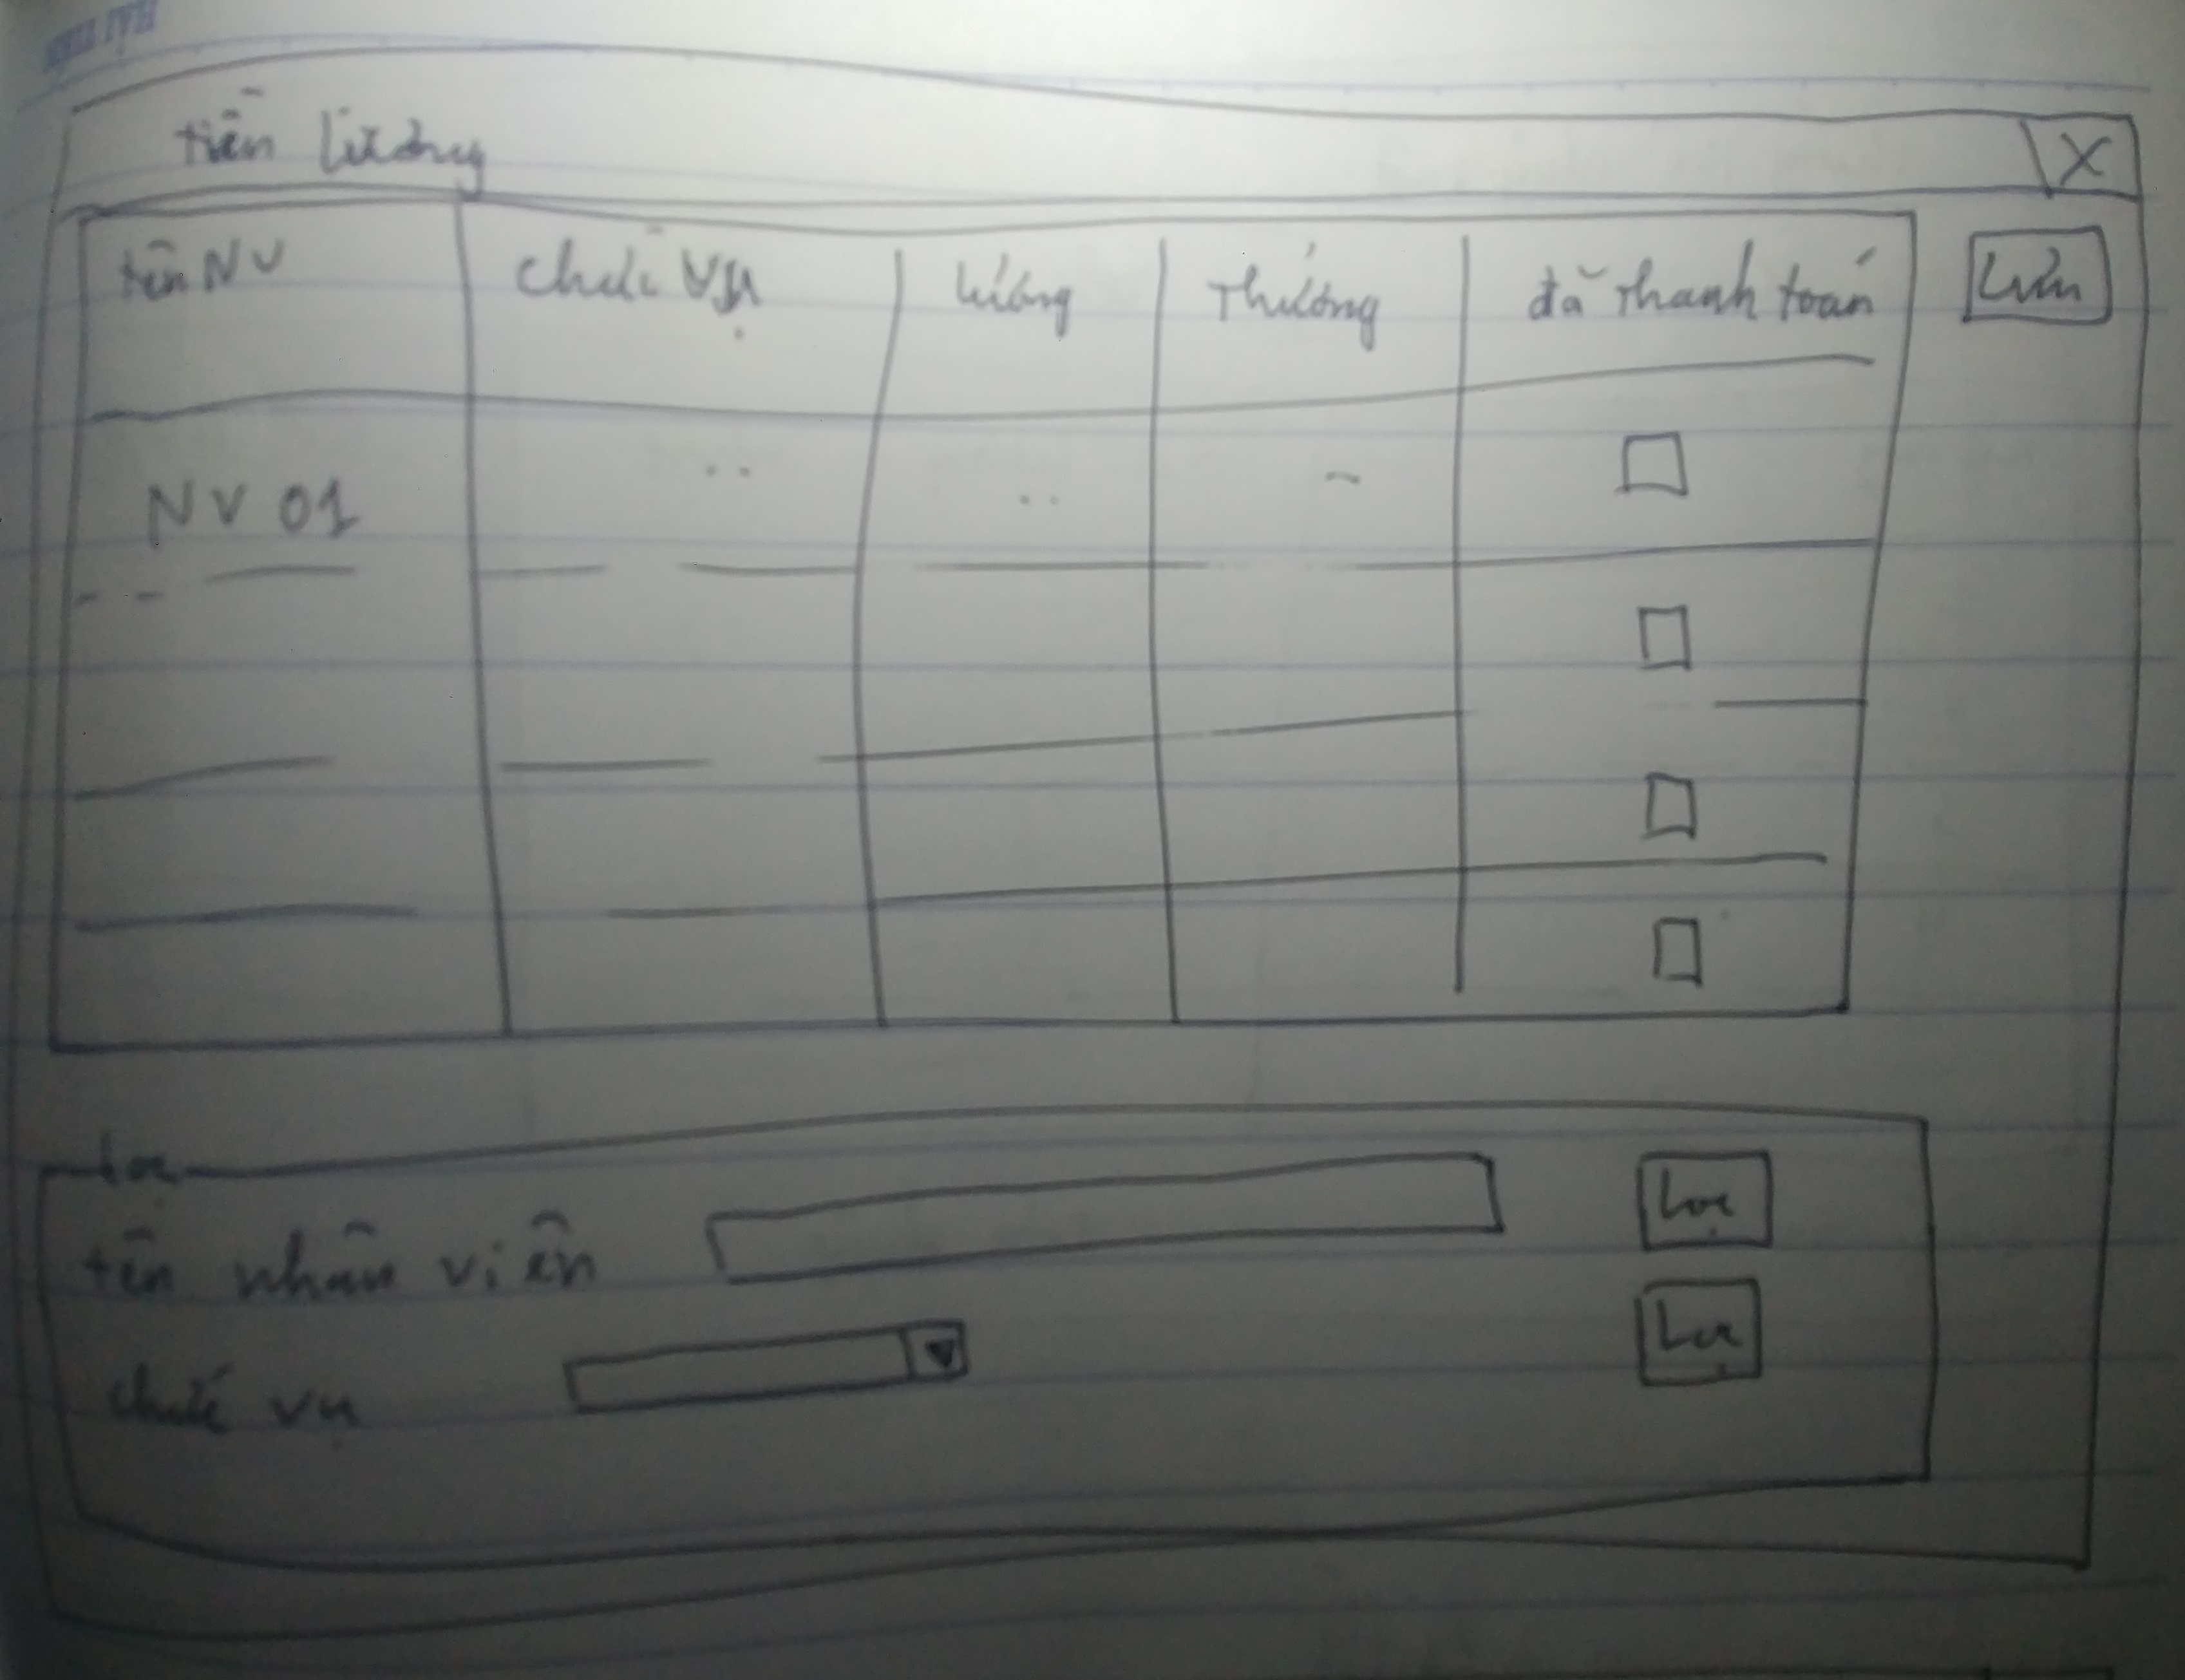 tiền lương X
tên NV chức vụ lương Thưởng đã thanh toán Lưu
NV 01
Lọc
tên nhân viên Lọc
chức vụ Lọc